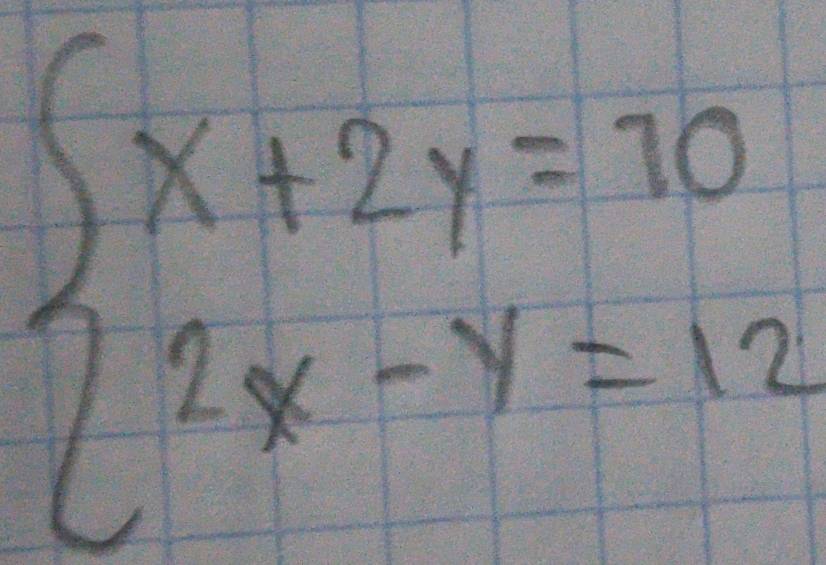 x + 2y = 10
2x - y = 12